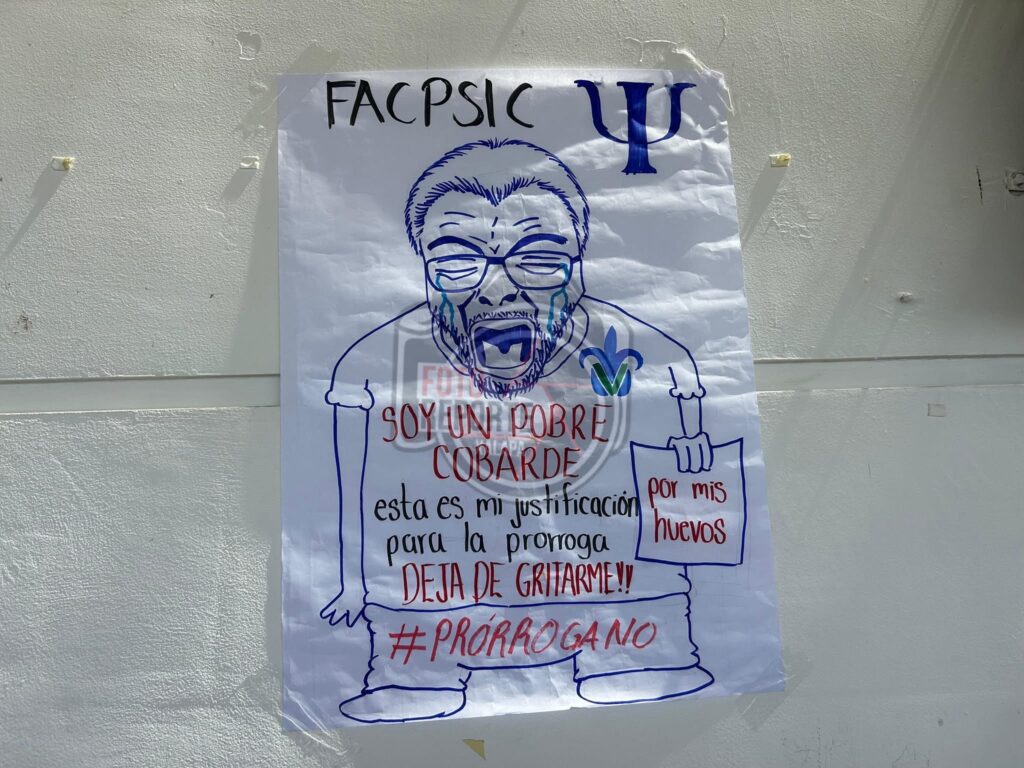 FACPSIC Ψ
SOY UN POBRE
COBARDE
esta es mi justificación
para la prorroga
DEJA DE GRITARME!!
por mis
huevos
#PRÓRROGANO